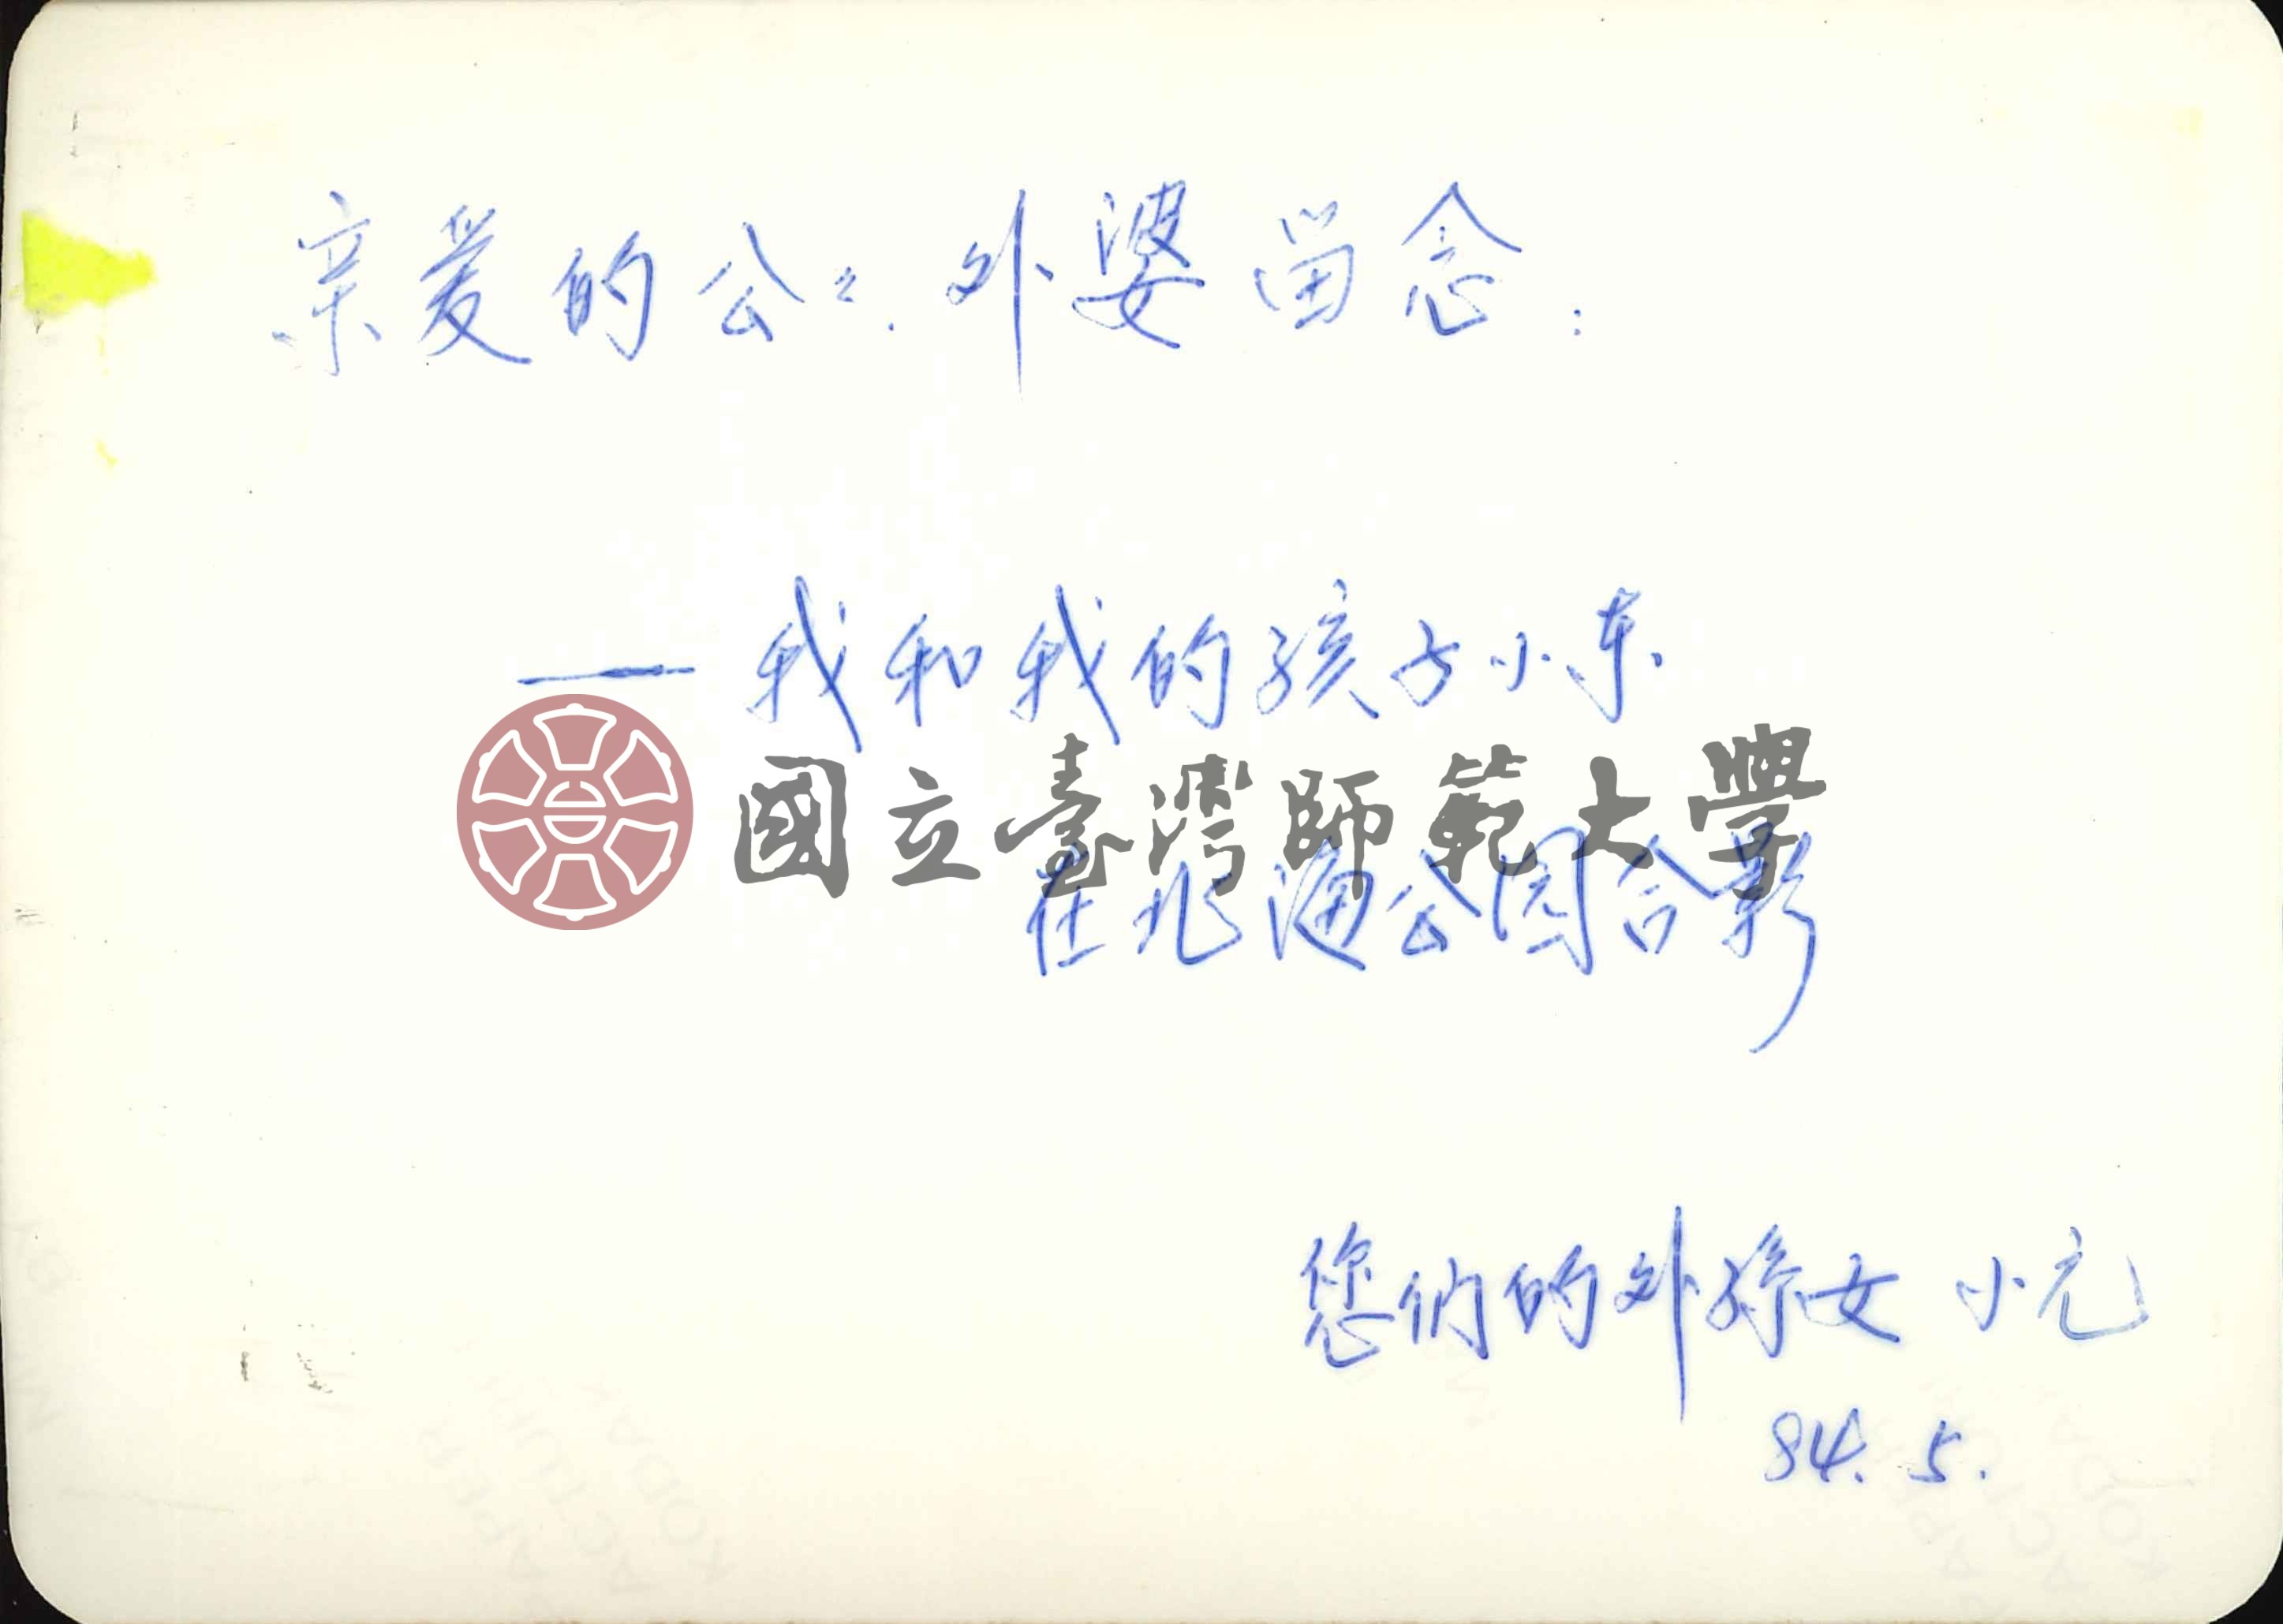 亲爱的公〻.外婆留念:
——我和我的孩子小东
國立臺灣師範大學
在北海公园合影
您们的外孙女 小元
84.5.